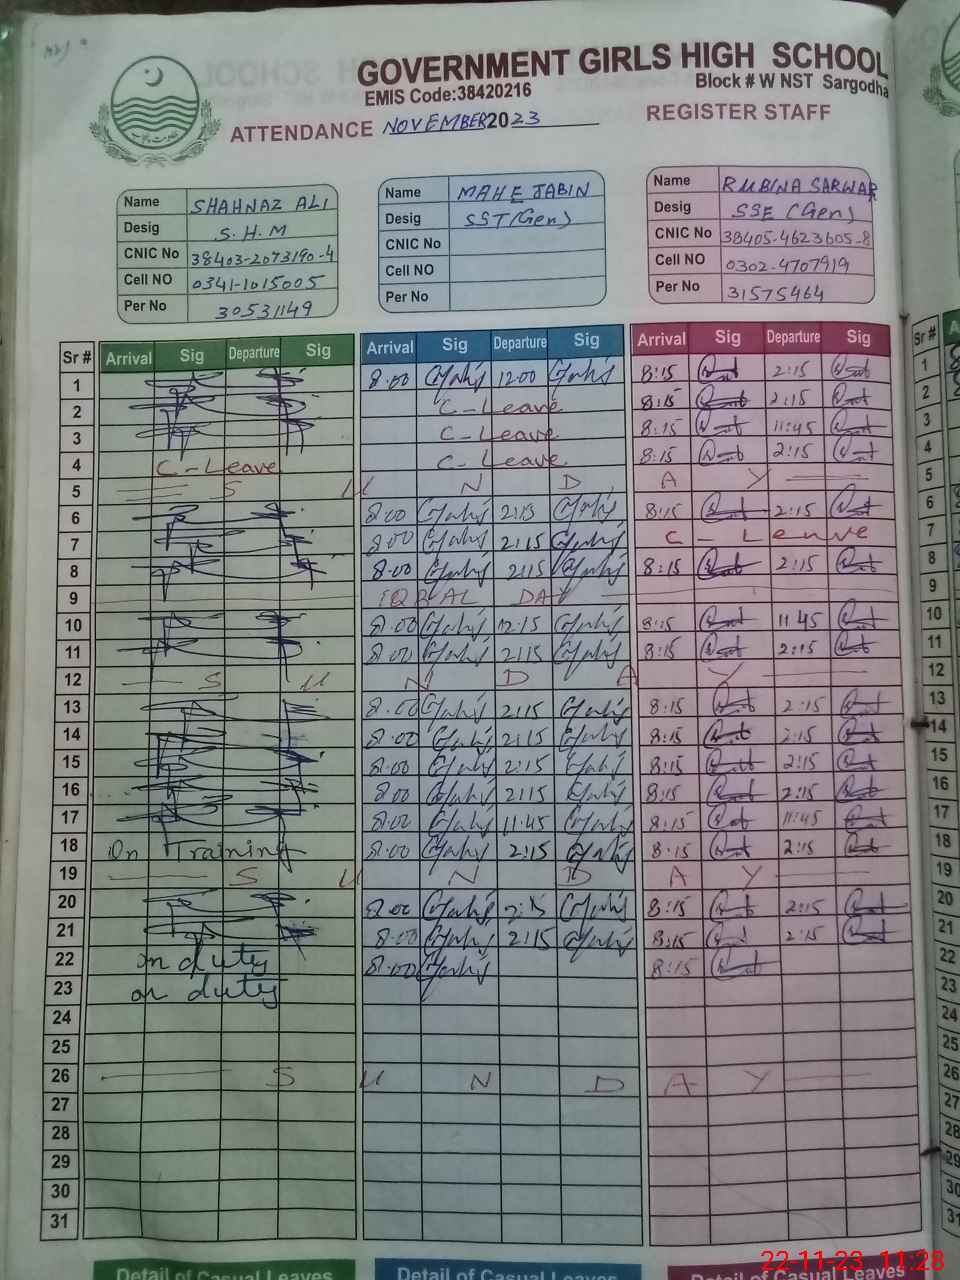 GOVERNMENT GIRLS HIGH SCHOOL
EMIS Code:38420216 Block # W NST Sargodha
ATTENDANCE NOVEMBER 2023 REGISTER STAFF
Name SHAHNAZ ALI
Desig S.H.M
CNIC No 38403-2073190-4
Cell NO 0341-1015005
Per No 30531149
Name MAHE JABIN
Desig SST(Gen)
CNIC No
Cell NO
Per No
Name RUBINA SARWAR
Desig SSE (Gen)
CNIC No 38405-4623605-8
Cell NO 0302-4707919
Per No 31575464
Sr # Arrival Sig Departure Sig Arrival Sig Departure Sig Arrival Sig Departure Sig Sr #
1 8.00 12:00 8:15 2:15 1
2 C-Leave 8:15 2:15 2
3 C-Leave 8:15 11:45 3
4 C-Leave C-Leave 8:15 2:15 4
5 S U N D A Y 5
6 8:00 2:15 8:15 2:15 6
7 8:00 2:15 C-Leave 7
8 8:00 2:15 8:15 2:15 8
9 IQBAL DAY 9
10 8:00 12:15 8:15 11:45 10
11 8:00 2:15 8:15 2:15 11
12 S U N D A Y 12
13 8:00 2:15 8:15 2:15 13
14 8:00 2:15 8:15 2:15 14
15 8:00 2:15 8:15 2:15 15
16 8:00 2:15 8:15 2:15 16
17 8:00 11:45 8:15 11:45 17
18 On Training 8:00 2:15 8:15 2:15 18
19 S U N D A Y 19
20 8:00 2:15 8:15 2:15 20
21 8:00 2:15 8:15 2:15 21
22 on duty 8:00 8:15 22
23 on duty 23
24 24
25 25
26 S U N D A Y 26
27 27
28 28
29 29
30 30
31 31
Detail of Casual Leaves Detail of Casual Leaves Detail of Casual Leaves
22-11-23 11:28